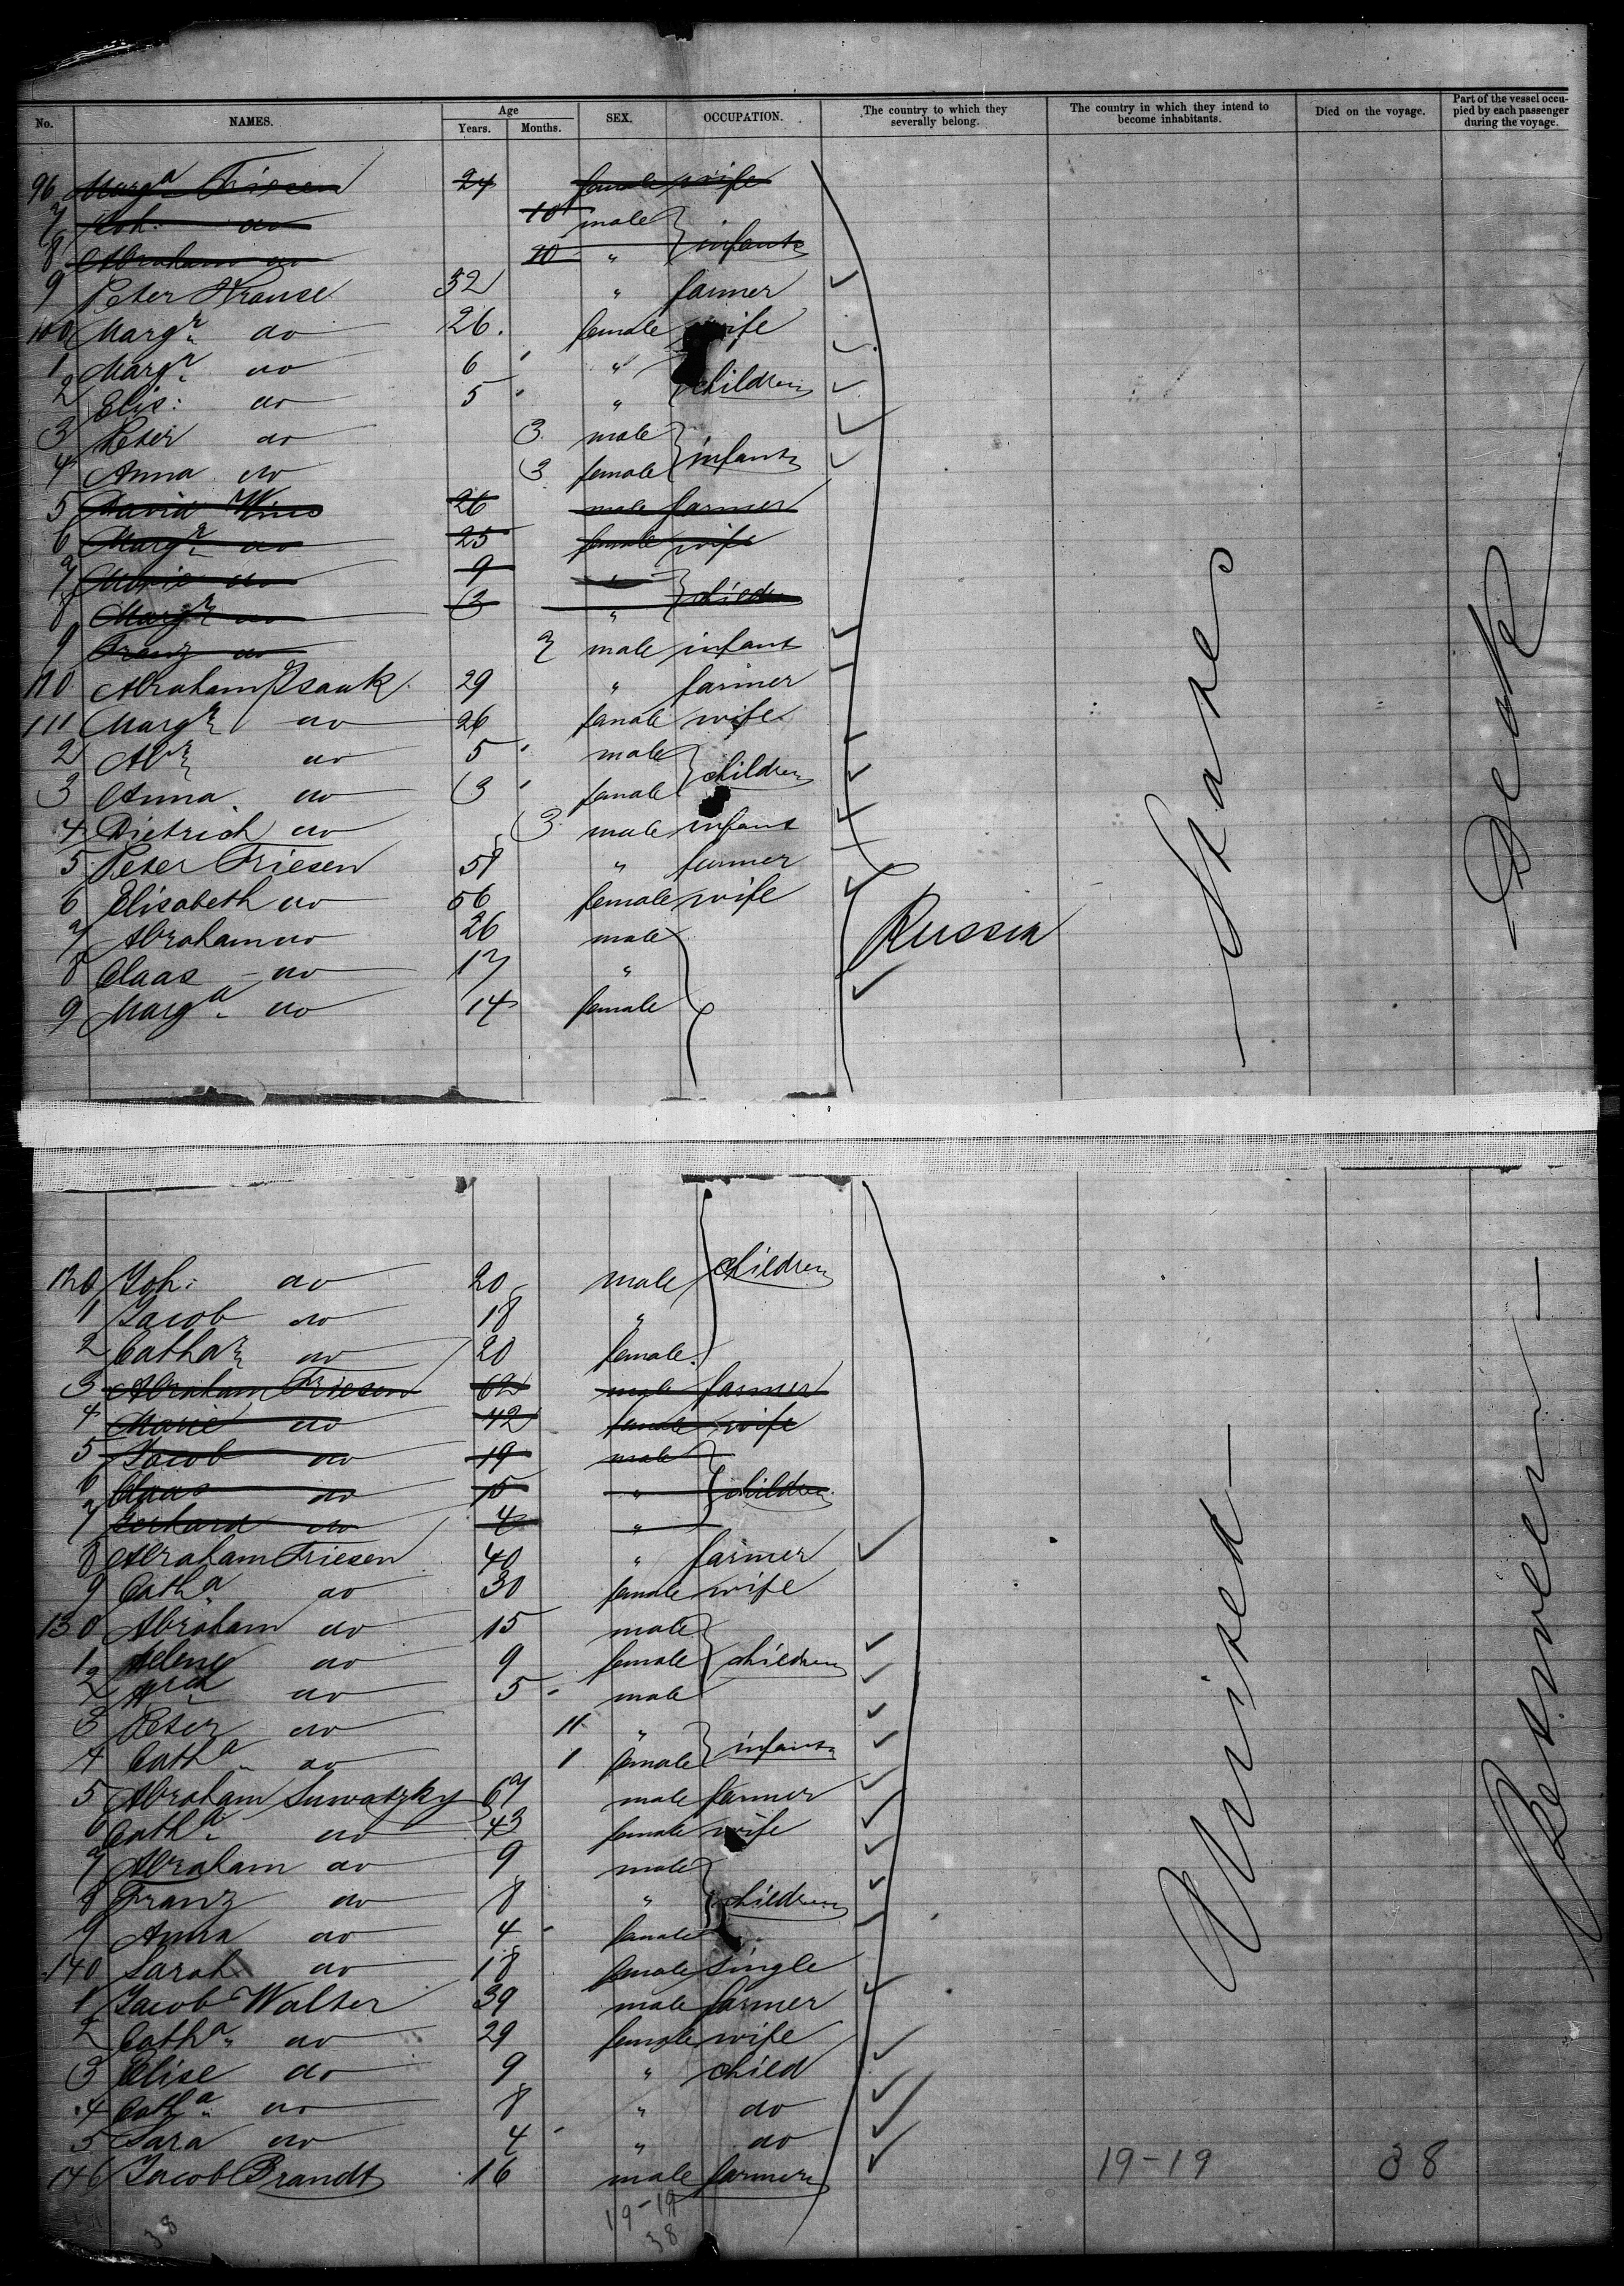 No. NAMES. Age Years. Months. SEX. OCCUPATION. The country to which they severally belong. The country in which they intend to become inhabitants. Died on the voyage. Part of the vessel occupied by each passenger during the voyage.
96 Marg.a Friesen 24 female wife
7 Joh: do 10 male
8 Abraham do 10 " infants
9 Peter Krause 32 " farmer
100 Margr. do 26. female wife
1 Margr. do 6 "
2 Elis: do 5 " children
3 Peter do 3 male
4 Anna do 3 female infants
5 David Wins 26 male farmer
6 Margr. do 25 female wife
7 Marie do 9 "
8 Margr do 3 " children
9 Franz do 3 male infant
110 Abraham Isaak 29 " farmer
111 Margr do 26 female wife
2 Abr do 5 male
3 Anna do 3 female children
4 Dietrich do 3 male infant
5 Peter Friesen 58 " farmer
6 Elisabeth do 56 female wife
7 Abraham do 26 male
8 Claas do 17 "
9 Marg.a do 14 female
Russia
States
Deck
120 Joh: do 20 male children
1 Jacob do 18 "
2 Cathar do 20 female
3 Abraham Friesen 62 male farmer
4 Marie do 42 female wife
5 Jacob do 19 male
6 Claas do 15 " children
7 Gerhard do 4 "
8 Abraham Friesen 40 " farmer
9 Cath.a do 30 female wife
130 Abraham do 15 male
1 Helene do 9 female children
2 do 5 male
3 Peter do 11 "
4 Cath.a do 1 female infants
5 Abraham Suwatzky 67 male farmer
6 Cath.a do 43 female wife
7 Abraham do 9 male
8 Franz do 8 " children
9 Anna do 4 female
140 Sarah do 18 female single
1 Jacob Walter 39 male farmer
2 Cath.a do 29 female wife
3 Elise do 9 " child
4 Cath.a do 8 " do
5 Sara do 4 " do
146 Jacob Brandt 16 male farmer
United
Between
19-19 38
19-19
38
38